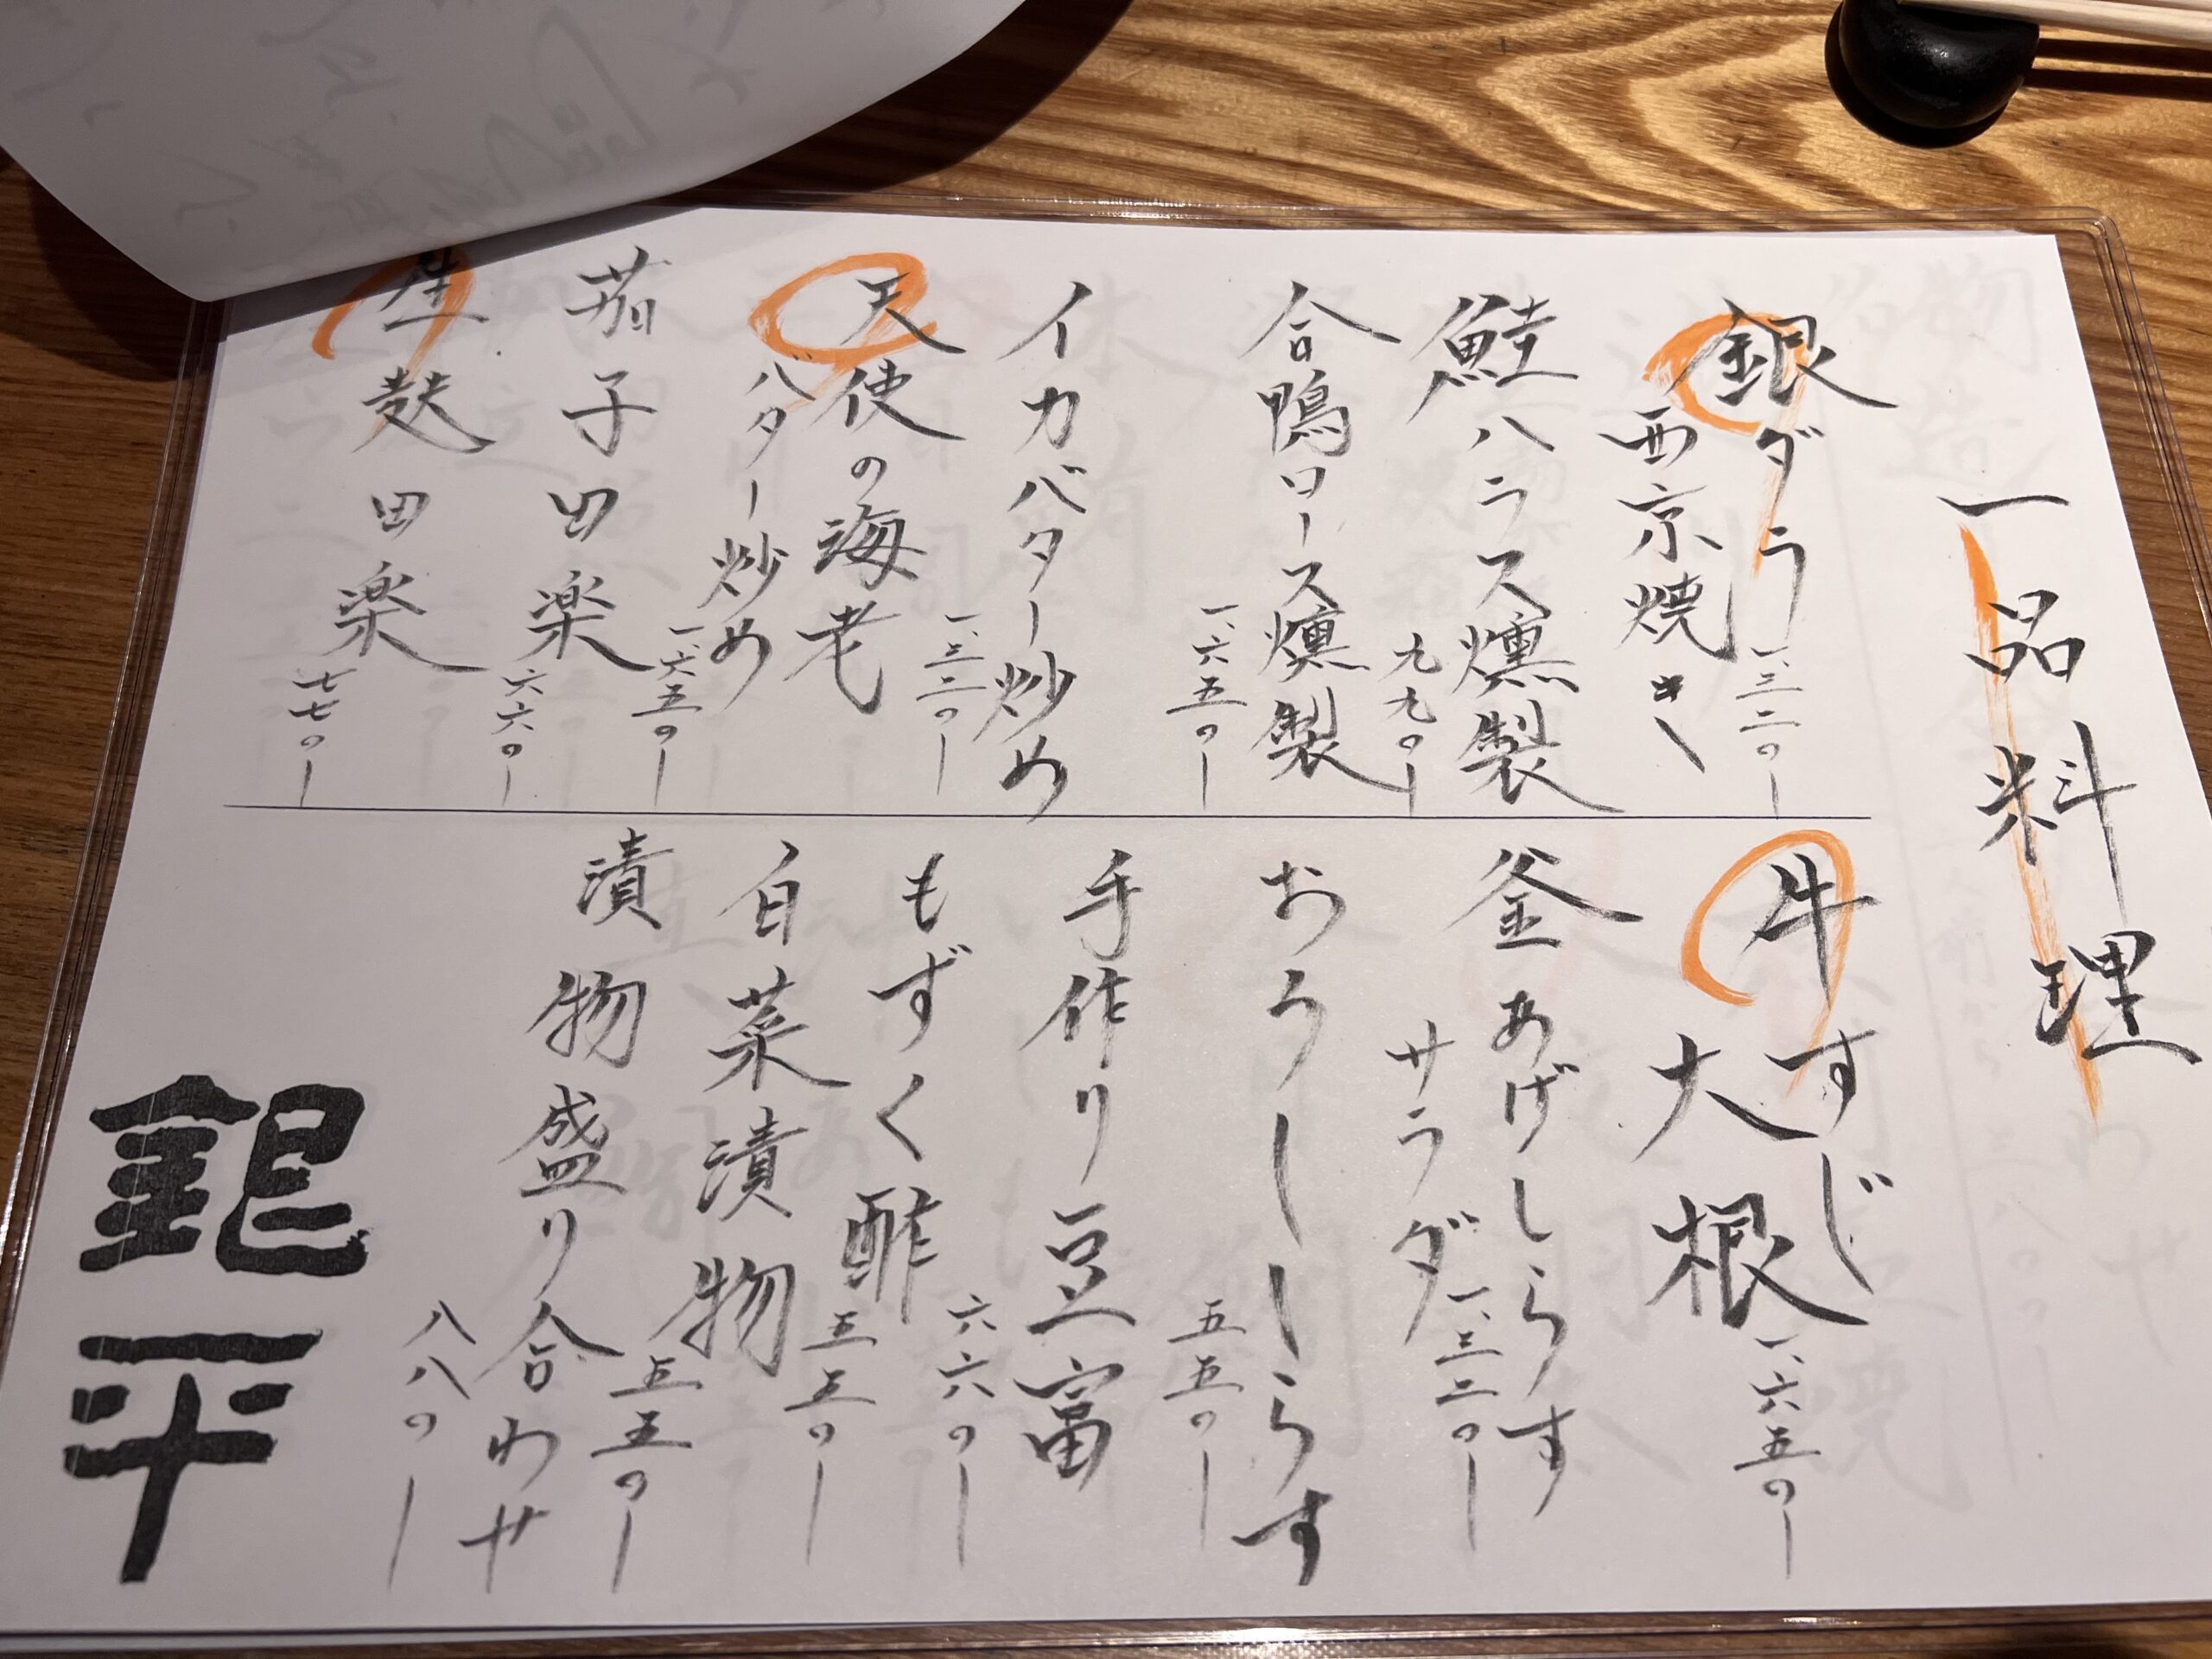 一品料理
銀ダラ
西京焼き
一、三二〇ー
鮭ハラス燻製
九九〇ー
合鴨ロース燻製
一、六五〇ー
イカバター炒め
一、三二〇ー
天使の海老
バター炒め
一、六五〇ー
茄子田楽
六六〇ー
生麩田楽
七七〇ー
牛すじ
大根
一、六五〇ー
釜あげしらす
サラダ
一、三二〇ー
おろししらす
五五〇ー
手作り豆富
六六〇ー
もずく酢
五五〇ー
白菜漬物
五五〇ー
漬物盛り合わせ
八八〇ー
銀平